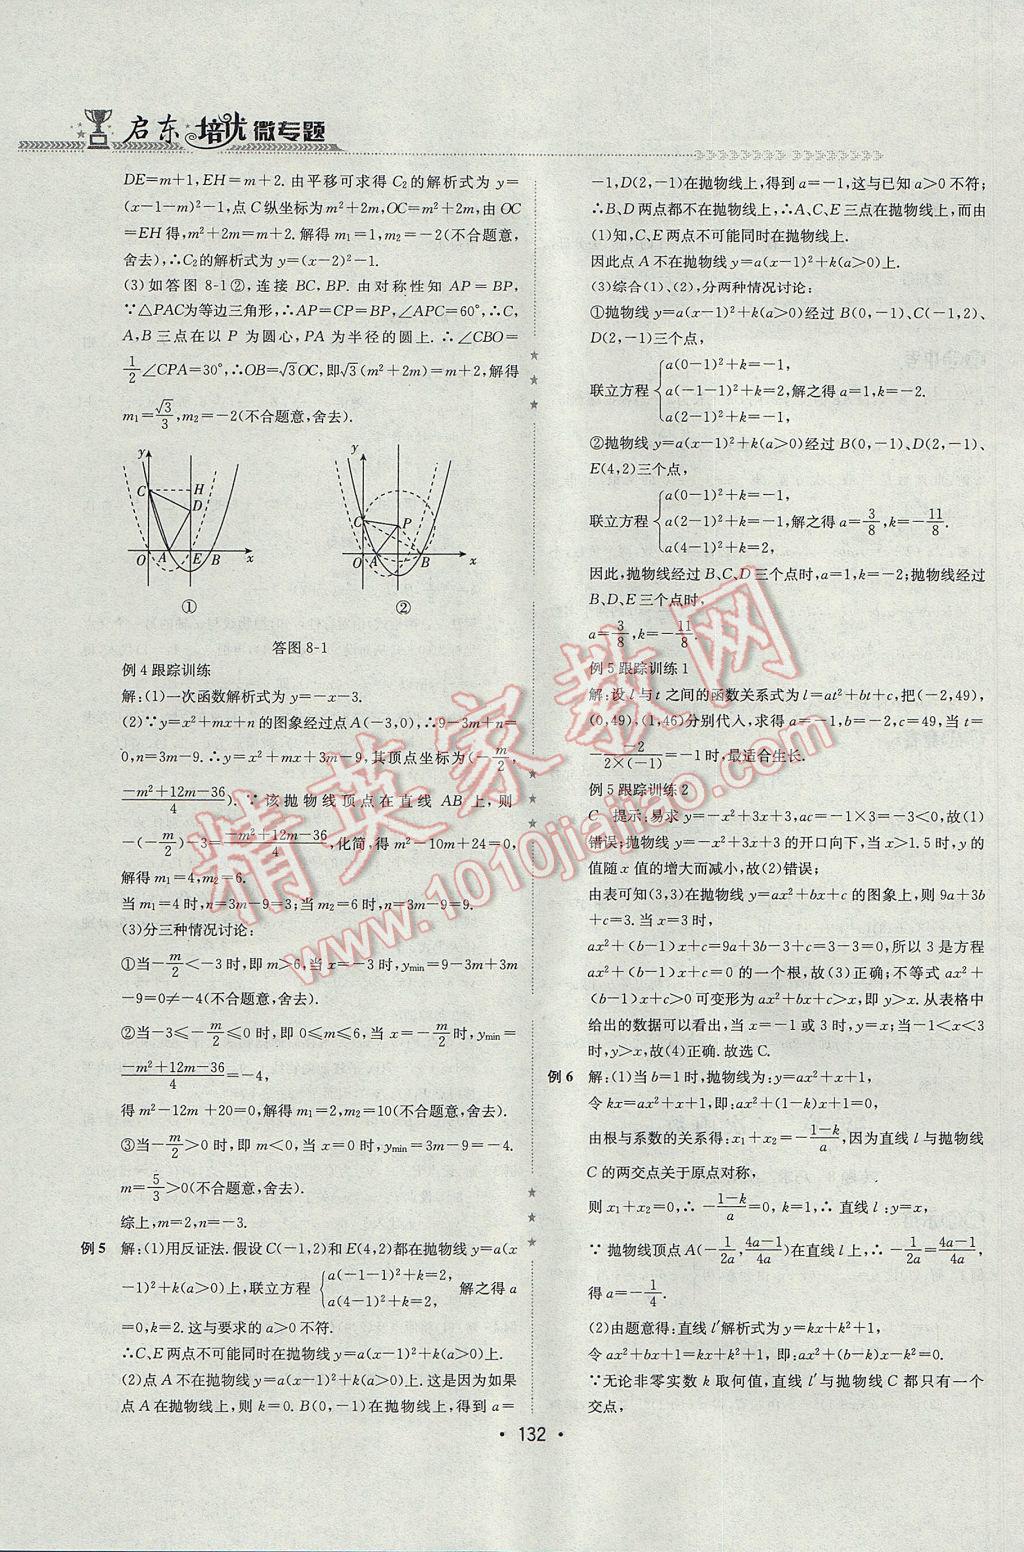 启东培优微专题
DE=m+1,EH=m+2.由平移可求得C₂的解析式为y=
(x-1-m)²-1,点C纵坐标为m²+2m,OC=m²+2m,由OC
=EH得,m²+2m=m+2.解得m₁=1,m₂=-2(不合题意,
舍去),∴C₂的解析式为y=(x-2)²-1.
(3)如答图8-1②,连接BC,BP.由对称性知AP=BP,
∵△PAC为等边三角形,∴AP=CP=BP,∠APC=60°,∴C,
A,B三点在以P为圆心,PA为半径的圆上.∴∠CBO=
1/2∠CPA=30°,∴OB=√3OC,即√3(m²+2m)=m+2,解得
m₁=√3/3,m₂=-2(不合题意,舍去).
y C H D O A E B x ①
y C P O A B x ②
答图8-1
例4跟踪训练
解:(1)一次函数解析式为y=-x-3.
(2)∵y=x²+mx+n的图象经过点A(-3,0),∴9-3m+n=
0,n=3m-9.∴y=x²+mx+3m-9,其顶点坐标为(-m/2,
(-m²+12m-36)/4).∵该抛物线顶点在直线AB上,则
-(-m/2)-3=(-m²+12m-36)/4,化简,得m²-10m+24=0,
解得m₁=4,m₂=6.
当m₁=4时,n=3m-9=3;当m₂=6时,n=3m-9=9.
(3)分三种情况讨论:
①当-m/2<-3时,即m>6,当x=-3时,ymin=9-3m+3m
-9=0≠-4(不合题意,舍去).
②当-3≤-m/2≤0时,即0≤m≤6,当x=-m/2时,ymin=
(-m²+12m-36)/4=-4,
得m²-12m+20=0,解得m₁=2,m₂=10(不合题意,舍去).
③当-m/2>0时,即m<0,当x=0时,ymin=3m-9=-4.
m=5/3>0(不合题意,舍去).
综上,m=2,n=-3.
例5 解:(1)用反证法.假设C(-1,2)和E(4,2)都在抛物线y=a(x
-1)²+k(a>0)上,联立方程{a(-1-1)²+k=2, a(4-1)²+k=2, 解之得a
=0,k=2.这与要求的a>0不符.
∴C、E两点不可能同时在抛物线y=a(x-1)²+k(a>0)上.
(2)点A不在抛物线y=a(x-1)²+k(a>0)上.这是因为如果
点A在抛物线上,则k=0.B(0,-1)在抛物线上,得到a=
-1,D(2,-1)在抛物线上,得到a=-1,这与已知a>0不符;
∴B、D两点都不在抛物线上,∴A、C、E三点在抛物线上,而由
(1)知,C、E两点不可能同时在抛物线上.
因此点A不在抛物线y=a(x-1)²+k(a>0)上.
(3)综合(1)、(2),分两种情况讨论:
①抛物线y=a(x-1)²+k(a>0)经过B(0,-1)、C(-1,2)、
D(2,-1)三个点,
联立方程{a(0-1)²+k=-1, a(-1-1)²+k=2, a(2-1)²+k=-1, 解之得a=1,k=-2.
②抛物线y=a(x-1)²+k(a>0)经过B(0,-1)、D(2,-1)、
E(4,2)三个点,
联立方程{a(0-1)²+k=-1, a(2-1)²+k=-1, a(4-1)²+k=2, 解之得a=3/8,k=-11/8.
因此,抛物线经过B、C、D三个点时,a=1,k=-2;抛物线经过
B、D、E三个点时,
a=3/8,k=-11/8.
例5跟踪训练1
解:设l与t之间的函数关系式为l=at²+bt+c,把(-2,49),
(0,49),(1,46)分别代入,求得a=-1,b=-2,c=49,当t=
-(-2)/(2×(-1))=-1时,最适合生长.
例5跟踪训练2
C 提示:易求y=-x²+3x+3,ac=-1×3=-3<0,故(1)
错误;抛物线y=-x²+3x+3的开口向下,当x>1.5时,y的
值随x值的增大而减小,故(2)错误;
由表可知(3,3)在抛物线y=ax²+bx+c的图象上,则9a+3b
+c=3.当x=3时,
ax²+(b-1)x+c=9a+3b-3+c=3-3=0,所以3是方程
ax²+(b-1)x+c=0的一个根,故(3)正确;不等式ax²+
(b-1)x+c>0可变形为ax²+bx+c>x,即y>x.从表格中
给出的数据可以看出,当x=-1或3时,y=x.当-1<x<3
时,y>x,故(4)正确.故选C.
例6 解:(1)当b=1时,抛物线为:y=ax²+x+1,
令kx=ax²+x+1,即:ax²+(1-k)x+1=0,
由根与系数的关系得:x₁+x₂=-(1-k)/a,因为直线l与抛物线
C的两交点关于原点对称,
则x₁+x₂=0,∴-(1-k)/a=0,k=1,∴直线l:y=x,
∵抛物线顶点A(-1/2a,(4a-1)/4a)在直线l上,∴-1/2a=(4a-1)/4a,
得a=-1/4.
(2)由题意得:直线l′解析式为y=kx+k²+1,
令ax²+bx+1=kx+k²+1,即:ax²+(b-k)x-k²=0.
∵无论非零实数k取何值,直线l′与抛物线C都只有一个
交点,
·132·
精英家教网
www.1010jiajiao.com